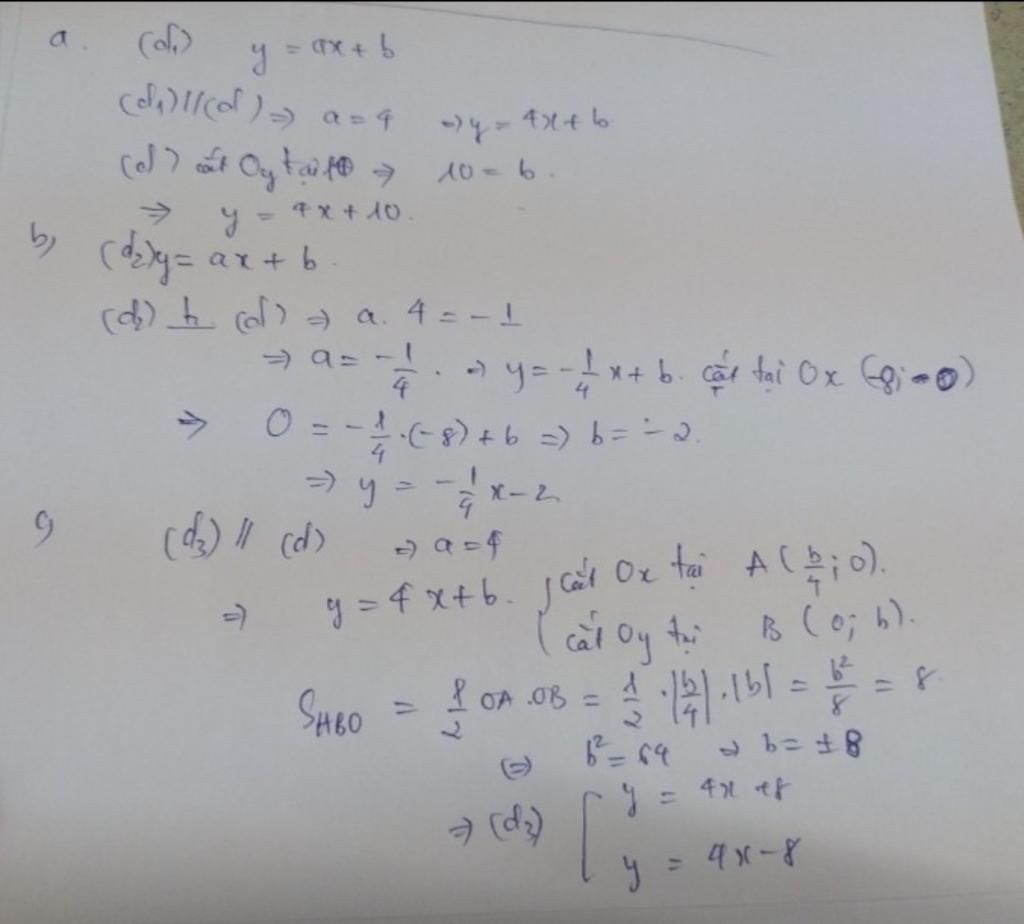 a. (d₁) y = ax + b
(d₁) // (d) ⇒ a = 4 ⇒ y = 4x + b
(d) cắt Oy tại 10 ⇒ 10 = b.
⇒ y = 4x + 10.
b) (d₂) y = ax + b.
(d₂) ⊥ (d) ⇒ a. 4 = -1
⇒ a = -1/4. ⇒ y = -1/4 x + b. cắt tại Ox (-8; 0)
⇒ 0 = -1/4 .(-8) + b ⇒ b = -2.
⇒ y = -1/4 x - 2
c) (d₃) // (d) ⇒ a = 4
⇒ y = 4x + b. { cắt Ox tại A (b/4; 0).
cắt Oy tại B (0; b).
S_ABO = 1/2 OA .OB = 1/2 .|b/4| .|b| = b²/8 = 8
⇔ b² = 64 ⇒ b = ±8
⇒ (d₃) [ y = 4x + 8
y = 4x - 8